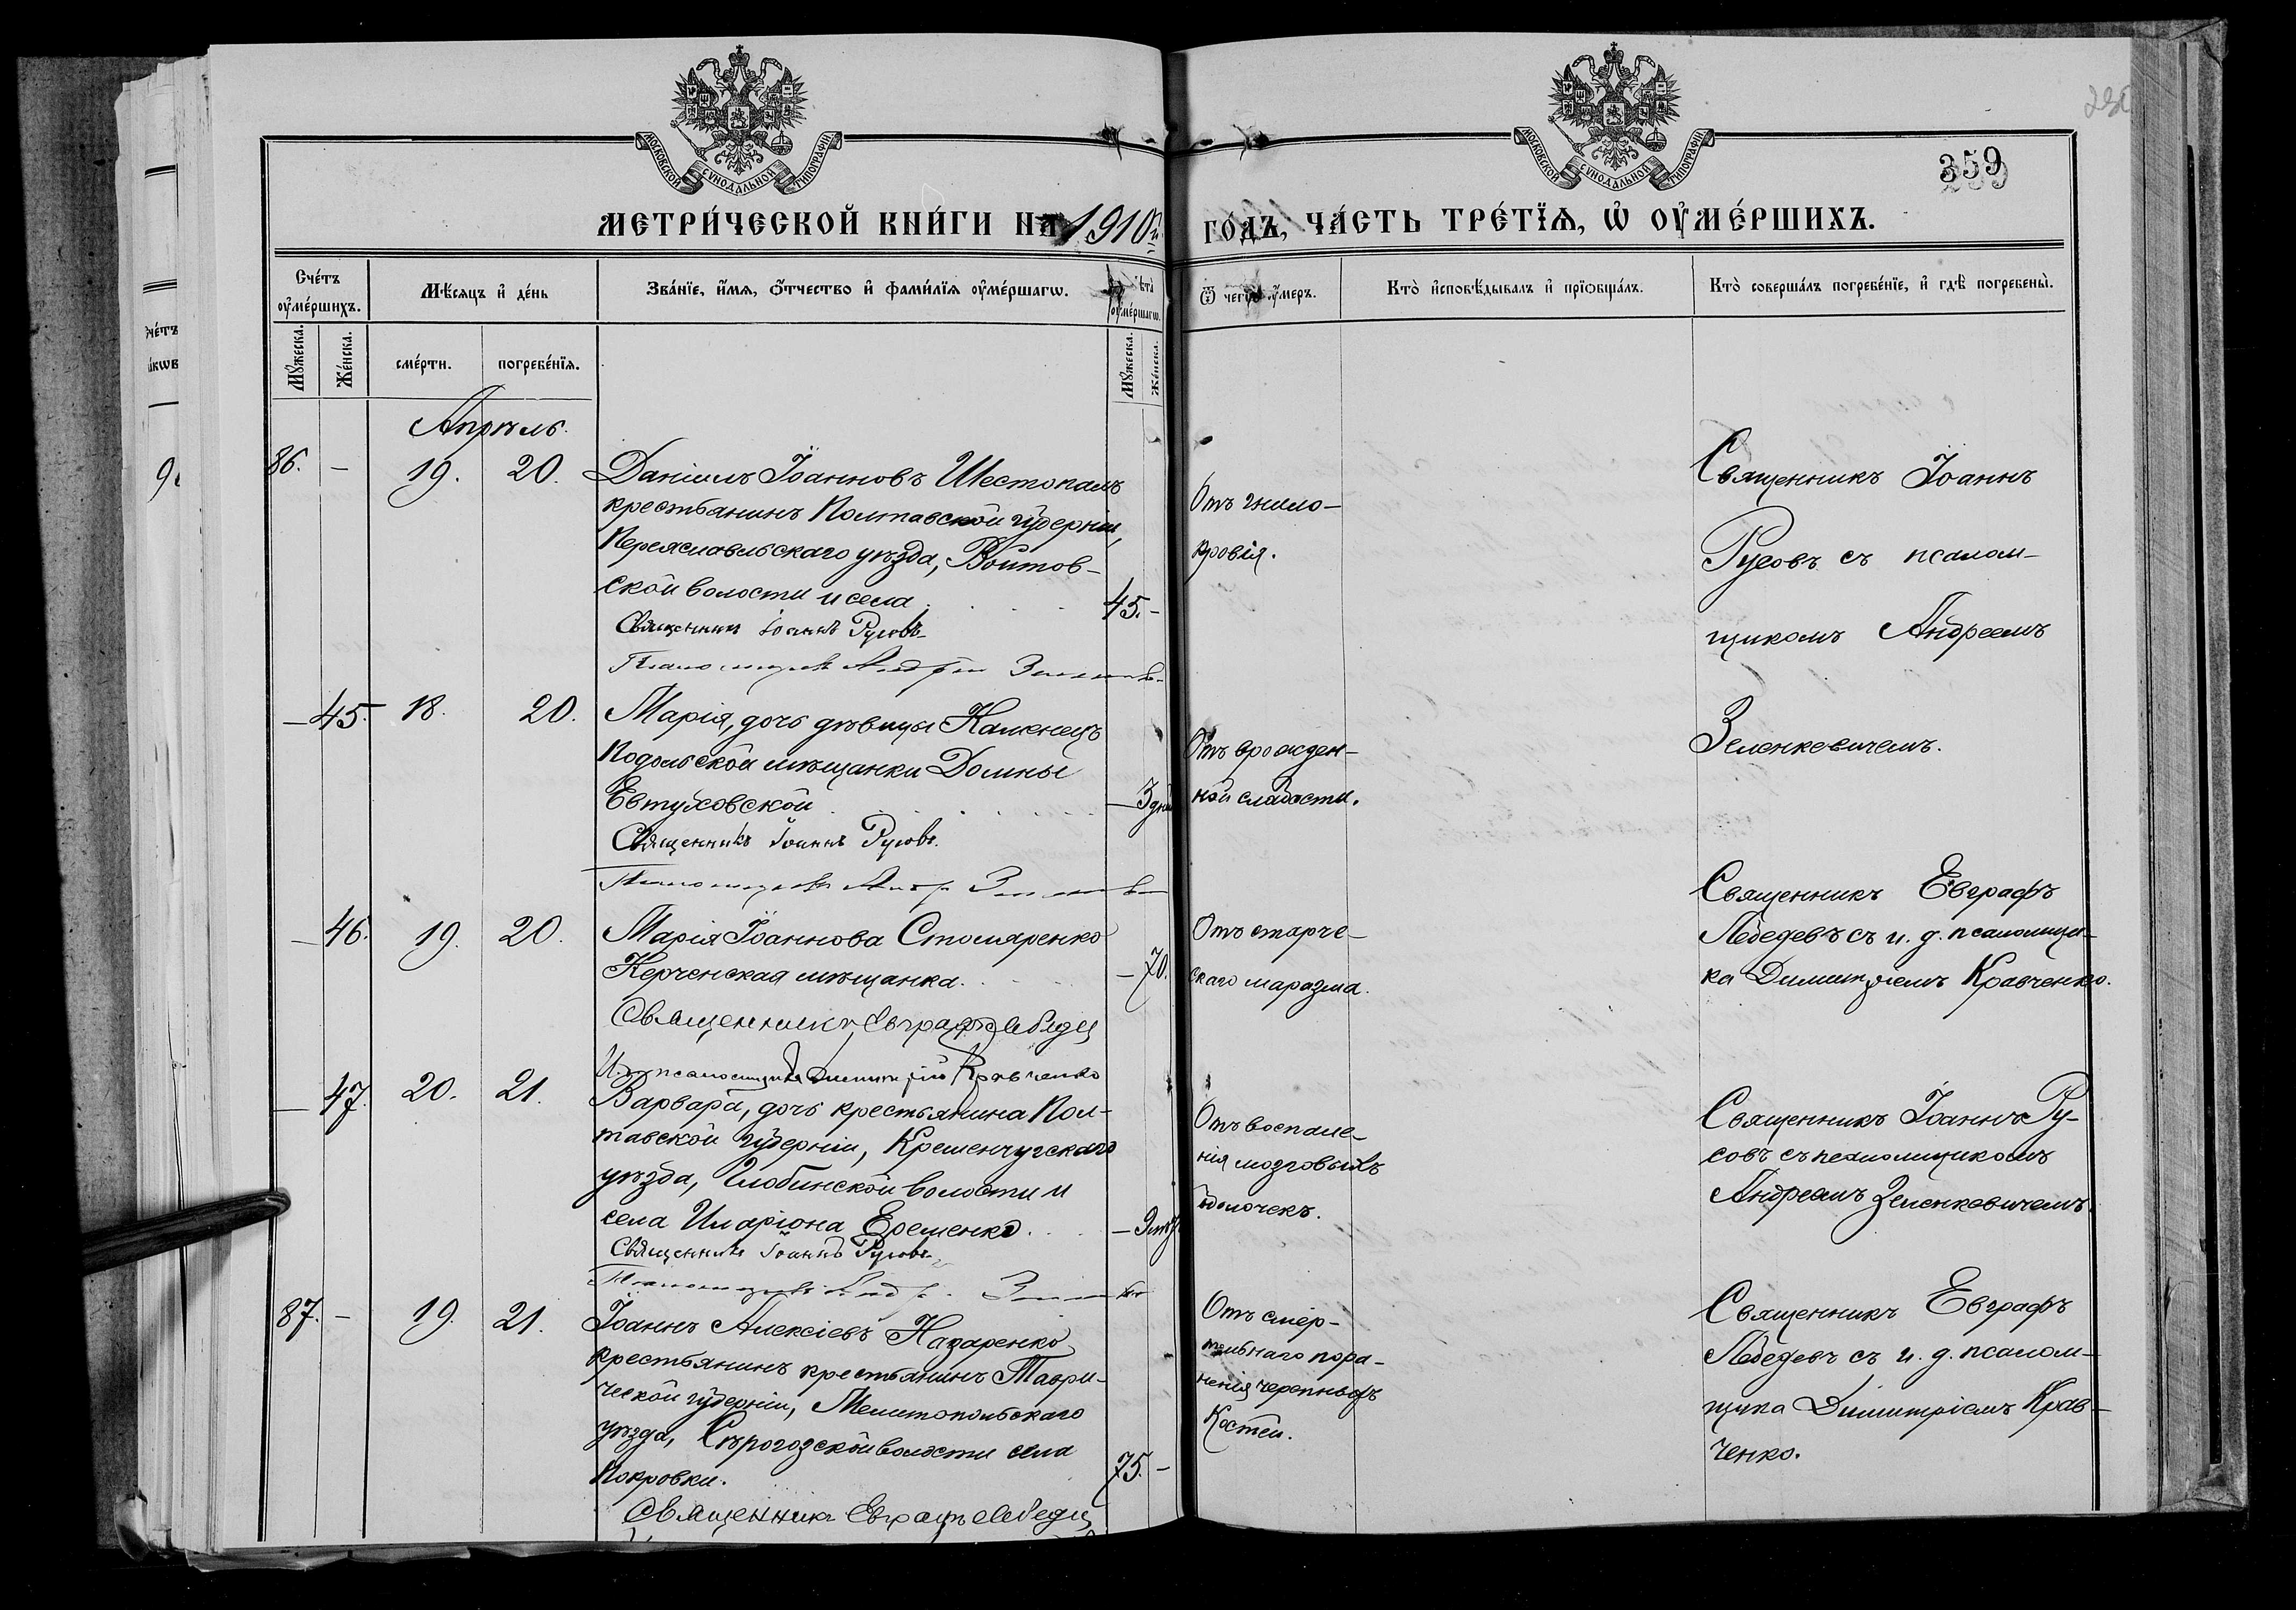 МОСКОВСКОЙ СѴНОДАЛЬНОЙ ТИПОГРАФІИ.
МОСКОВСКОЙ СѴНОДАЛЬНОЙ ТИПОГРАФІИ.
359
МЕТРИ́ЧЕСКОЙ КНИ́ГИ НА 1910й
ГО́ДЪ, ЧА́СТЬ ТРЕ́ТЇѦ, Ѡ҆ ОУ҆МЕ́РШИХЪ.
Сче́тъ оу҆ме́ршихъ.
Мѣ́сяцъ и҆ де́нь
Зва́нїе, и҆́мѧ, ѻ҆́тчество и҆ фами́лїѧ оу҆ме́ршагѡ.
оу҆ме́ршагѡ.
Ѿ чегѡ̀ оу҆́меръ.
Кто̀ и҆сповѣ́дывалъ и҆ прїѻбща́лъ.
Кто̀ соверша́лъ погребе́нїе, и҆ гдѣ̀ погребены̀.
Мꙋ́жеска.
Же́нска.
сме́рти.
погребе́нїѧ.
Мꙋ́жеска.
Же́нска.
Апрѣль.
86. – 19. 20.
Даніилъ Іоанновъ Шестопалъ
крестьянинъ Полтавской губерніи,
Переяславльскаго уѣзда, Войтов-
ской волости и села 45. –
Священникъ Іоаннъ Русовъ
Псаломщикъ Андрей
Отъ гнило-
кровія.
Священникъ Іоаннъ
Русовъ съ псалом-
щикомъ Андреемъ
Зеленкевичемъ.
– 45. 18. 20.
Марія, дочь дѣвицы Каменецъ
Подольской мѣщанки Домны
Евтуховской – 3 дня
Священникъ Іоаннъ Русовъ.
Псаломщикъ
Отъ врожден-
ной слабости.
– 46. 19. 20.
Марія Іоаннова Столяренко
Керченская мѣщанка. – 70.
Священникъ Евграфъ Лебедев
И. д. псаломщика Димитрій Кравченко
Отъ старче-
скаго маразма.
Священникъ Евграфъ
Лебедевъ съ и. д. псаломщи-
ка Димитріемъ Кравченко.
– 47. 20. 21.
Варвара, дочь крестьянина Пол-
тавской губерніи, Кременчугскаго
уѣзда, Глобинской волости и
села Иларіона Ерешенко. –
Священникъ Іоаннъ Русовъ
Псаломщикъ
Отъ воспале-
нія мозговыхъ
оболочекъ.
Священникъ Іоаннъ Ру-
совъ съ псаломщикомъ
Андреемъ Зеленкевичемъ.
87. – 19. 21.
Іоаннъ Алексіевъ Назаренко
крестьянинъ крестьянинъ Таври-
ческой губерніи, Мелитопольскаго
уѣзда, Сѣрогозской волости села
Покровки. 75. –
Священникъ Евграфъ Лебедев
Отъ смер-
тельнаго пора-
ненія черепныхъ
костей.
Священникъ Евграфъ
Лебедевъ съ и. д. псалом-
щика Димитріемъ Крав-
ченко.